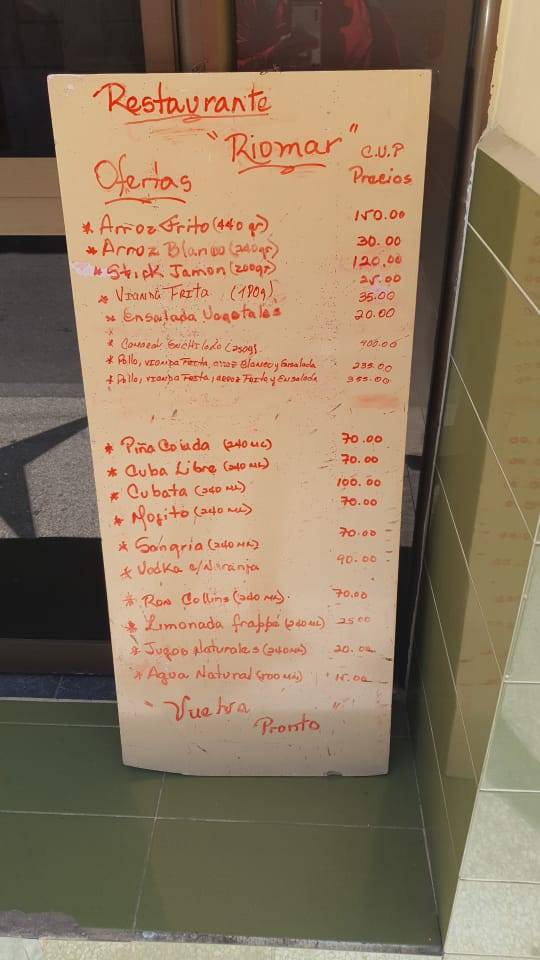 Restaurante
"Riomar"
C.U.P
Ofertas Precios
* Arroz Frito (440 gr) 150.00
* Arroz Blanco (240gr) 30.00
* Stick Jamon (200gr) 120.00
25.00
* Vianda Frita (180g) 35.00
* Ensalada Vegetales 20.00
* Camaron Enchilado (250g). 400.00
* Pollo, vianda Frita, arroz Blanco y Ensalada 235.00
* Pollo, vianda Frita, arroz Frito y Ensalada 355.00
* Piña Colada (240 ML) 70.00
* Cuba Libre (240 ML) 70.00
* Cubata (240 ML) 100.00
* Mojito (240 ML) 70.00
* Sangria (240 ML) 70.00
* Vodka c/Naranja 90.00
* Ron Collins (240 ML). 70.00
* Limonada frappé (240 ML) 25.00
* Jugos Naturales (240 ML) 20.00
* Agua Natural (500 ML) 15.00
"Vuelva
Pronto"